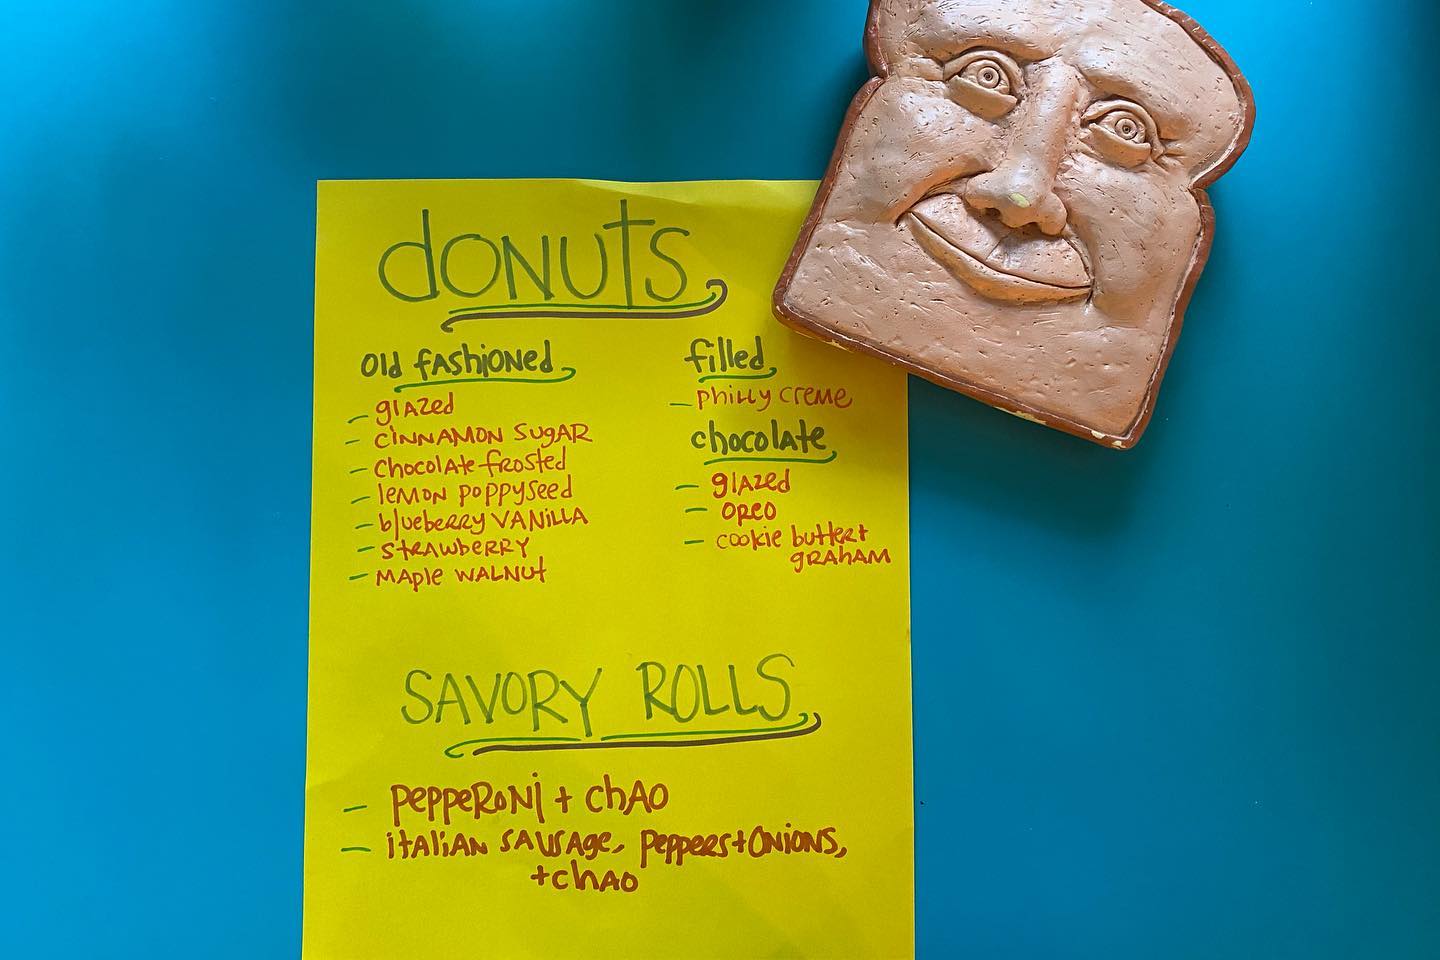 dONUTS
Old fashioned
- glazed
- cinnamon sugar
- chocolate frosted
- lemon poppyseed
- blueberry vanilla
- strawberry
- maple walnut
filled
- philly creme
chocolate
- glazed
- oreo
- cookie butter +
graham
SAVORY ROLLS
- pepperoni + chao
- italian sausage, peppers + onions,
+ chao